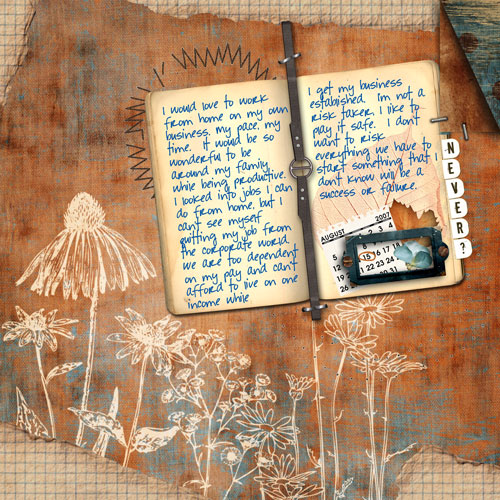 I would love to work
from home on my own
business, my pace, my
time. It would be so
wonderful to be
around my family,
while being productive.
I looked into jobs I can
do from home, but I
can't see myself
quitting my job from
the corporate world.
we are too dependent
on my pay and can't
afford to live on one
income while
I get my business
established. I'm not a
risk taker, I like to
play it safe. I don't
want to risk
everything we have to
start something that I
don't know will be a
success or failure.
NEVER?
AUGUST 2007
2 3 4
5
12 15 16 17 18
19 22 23 24 25
26